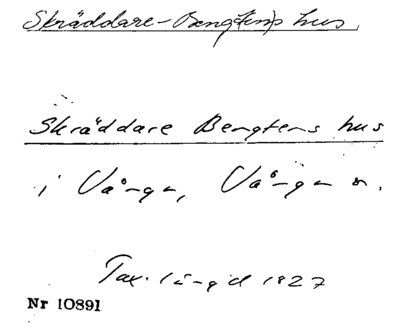 Skräddare-Bengtens hus
Skräddare Bengtens hus
i Vånga, Vånga s.
Tax. längd 1827
Nr 10891